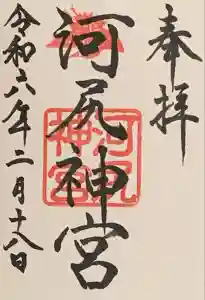 奉拝
河尻神宮
河尻
神宮
令和六年二月十八日